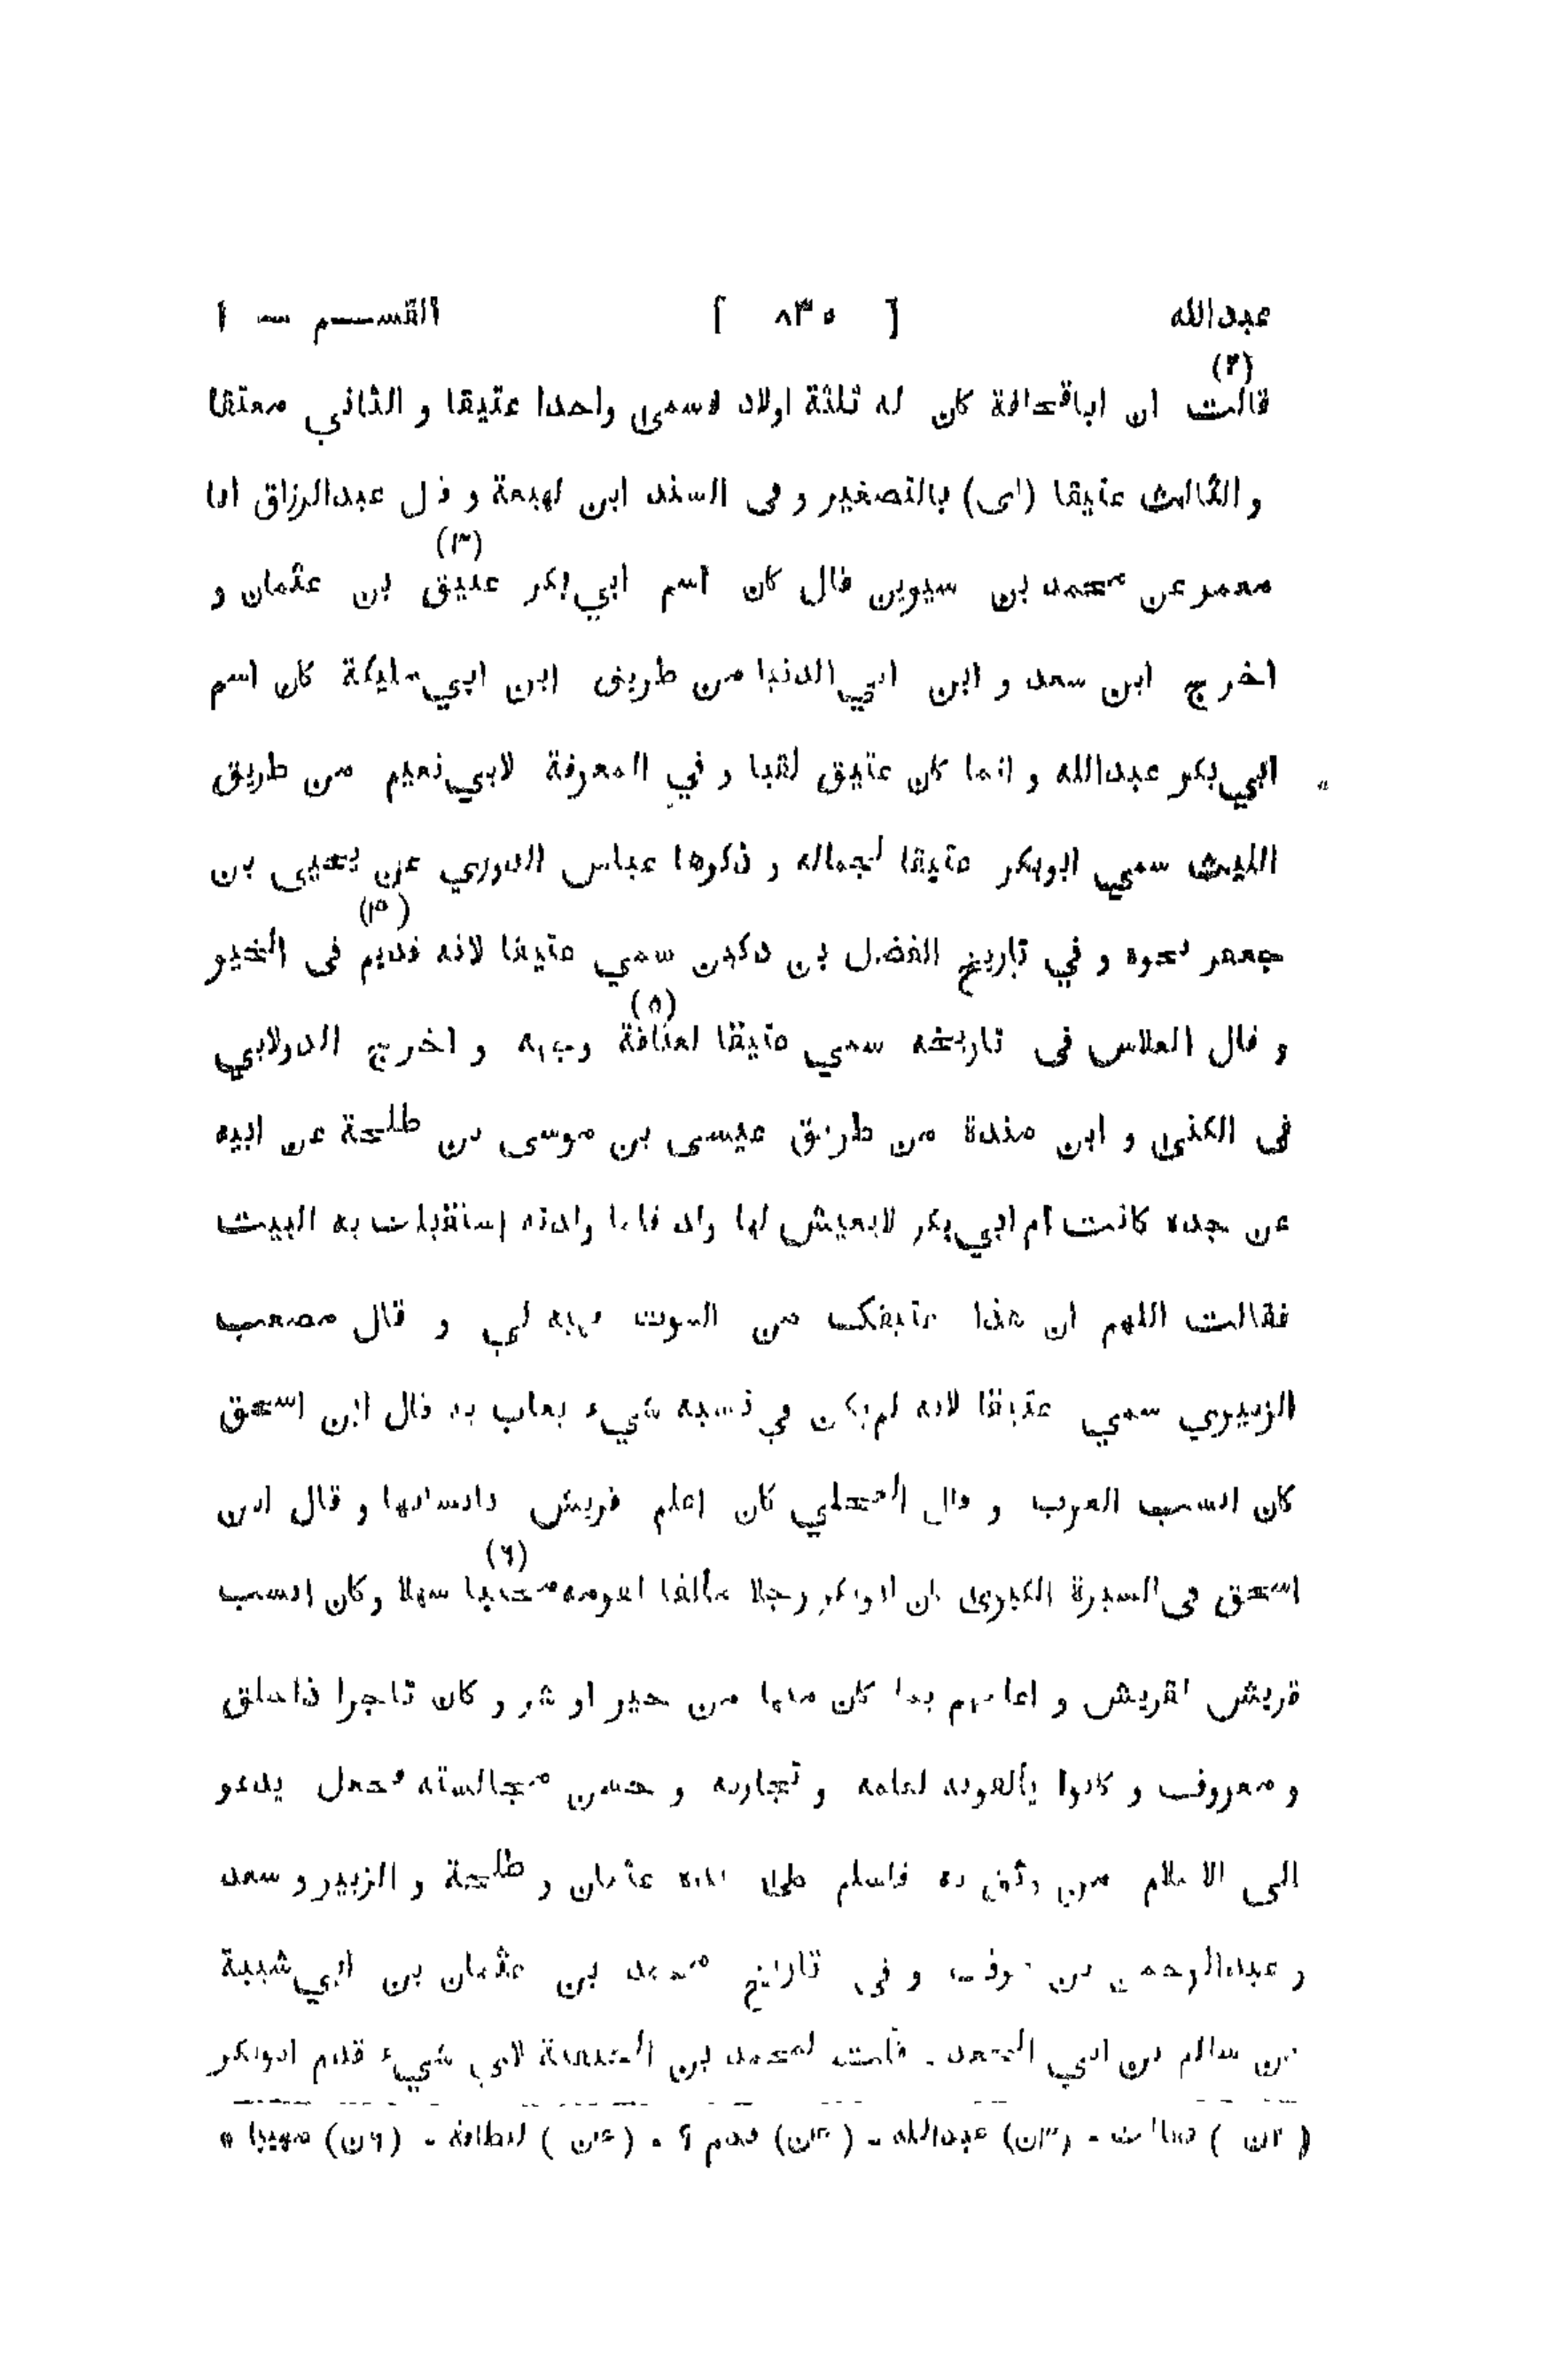 عبدالله [ ٨٣٥ ] القســم — ١
(٢)
قالت ان اباقحافة كان له ثلثة اولاد فسمى واحدا عتيقا و الثاني معتقا
و الثالث عتيقا (اى) بالتصغير و فى السند ابن لهيعة و قال عبدالرزاق انا
(٣)
معمر عن محمد بن سيرين قال كان اسم ابي بكر عتيق بن عثمان و
اخرج ابن سعد و ابن ابي الدنيا من طريق ابن ابي مليكة كان اسم
ابي بكر عبدالله و انما كان عتيق لقبا و في المعرفة لابي نعيم من طريق
الليث سمي ابوبكر عتيقا لجماله و ذكرها عباس الدوري عن يحيى بن
(٣)
جعفر نحوه و في تاريخ الفضل بن دكين سمي عتيقا لانه قديم فى الخير
(٥)
و قال الفلاس فى تاريخه سمي عتيقا لعتاقة وجهه و اخرج الدولابي
فى الكنى و ابن مندة من طريق عيسى بن موسى بن طلحة عن ابيه
عن جده كانت ام ابي بكر لايعيش لها ولد فلما ولدته استقبلت به البيت
فقالت اللهم ان هذا عتيقك من الموت فهبه لي و قال مصعب
الزبيري سمي عتيقا لانه لم يكن في نسبه شيء يعاب به قال ابن اسحق
كان انسب العرب و قال العجلي كان اعلم قريش بانسابها و قال ابن
(٦)
اسحق فى السيرة الكبرى كان ابوبكر رجلا مألفا لقومه محببا سهلا وكان انسب
قريش لقريش و اعلمهم بما كان منها من خير او شر و كان تاجرا ذاخلق
و معروف و كانوا يألفونه لعلمه و تجاربه و حسن مجالسته فجعل يدعو
الى الاسلام من وثق به فاسلم على يده عثمان و طلحة و الزبير و سعد
و عبدالرحمن بن عوف و فى تاريخ محمد بن عثمان بن ابي شيبة
عن سالم بن ابي الجعد - قلت لمحمد بن الحنفية لاي شيء قدم ابوبكر
( ٢ن ) فقالت - (٣ن) عبدالله - (٤ن) قدم ؟ - (٤ن ) لطافة - (٦ن) مهيبا *